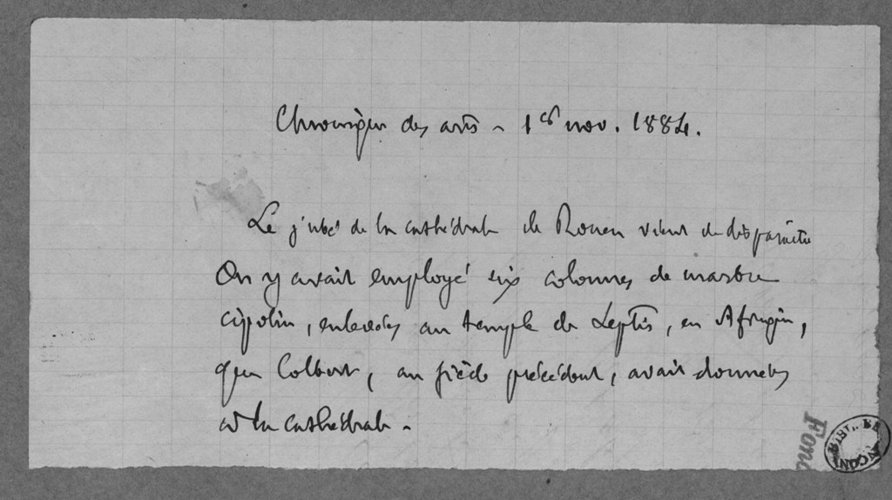 Chronique des arts - 1er nov. 1884.
Le jubé de la cathédrale de Rouen vient de disparaître
On y avait employé six colonnes de marbre
cipolin, enlevées au temple de Leptis, en Afrique,
que Colbert, au siècle précédent, avait données
à la cathédrale -
Fond